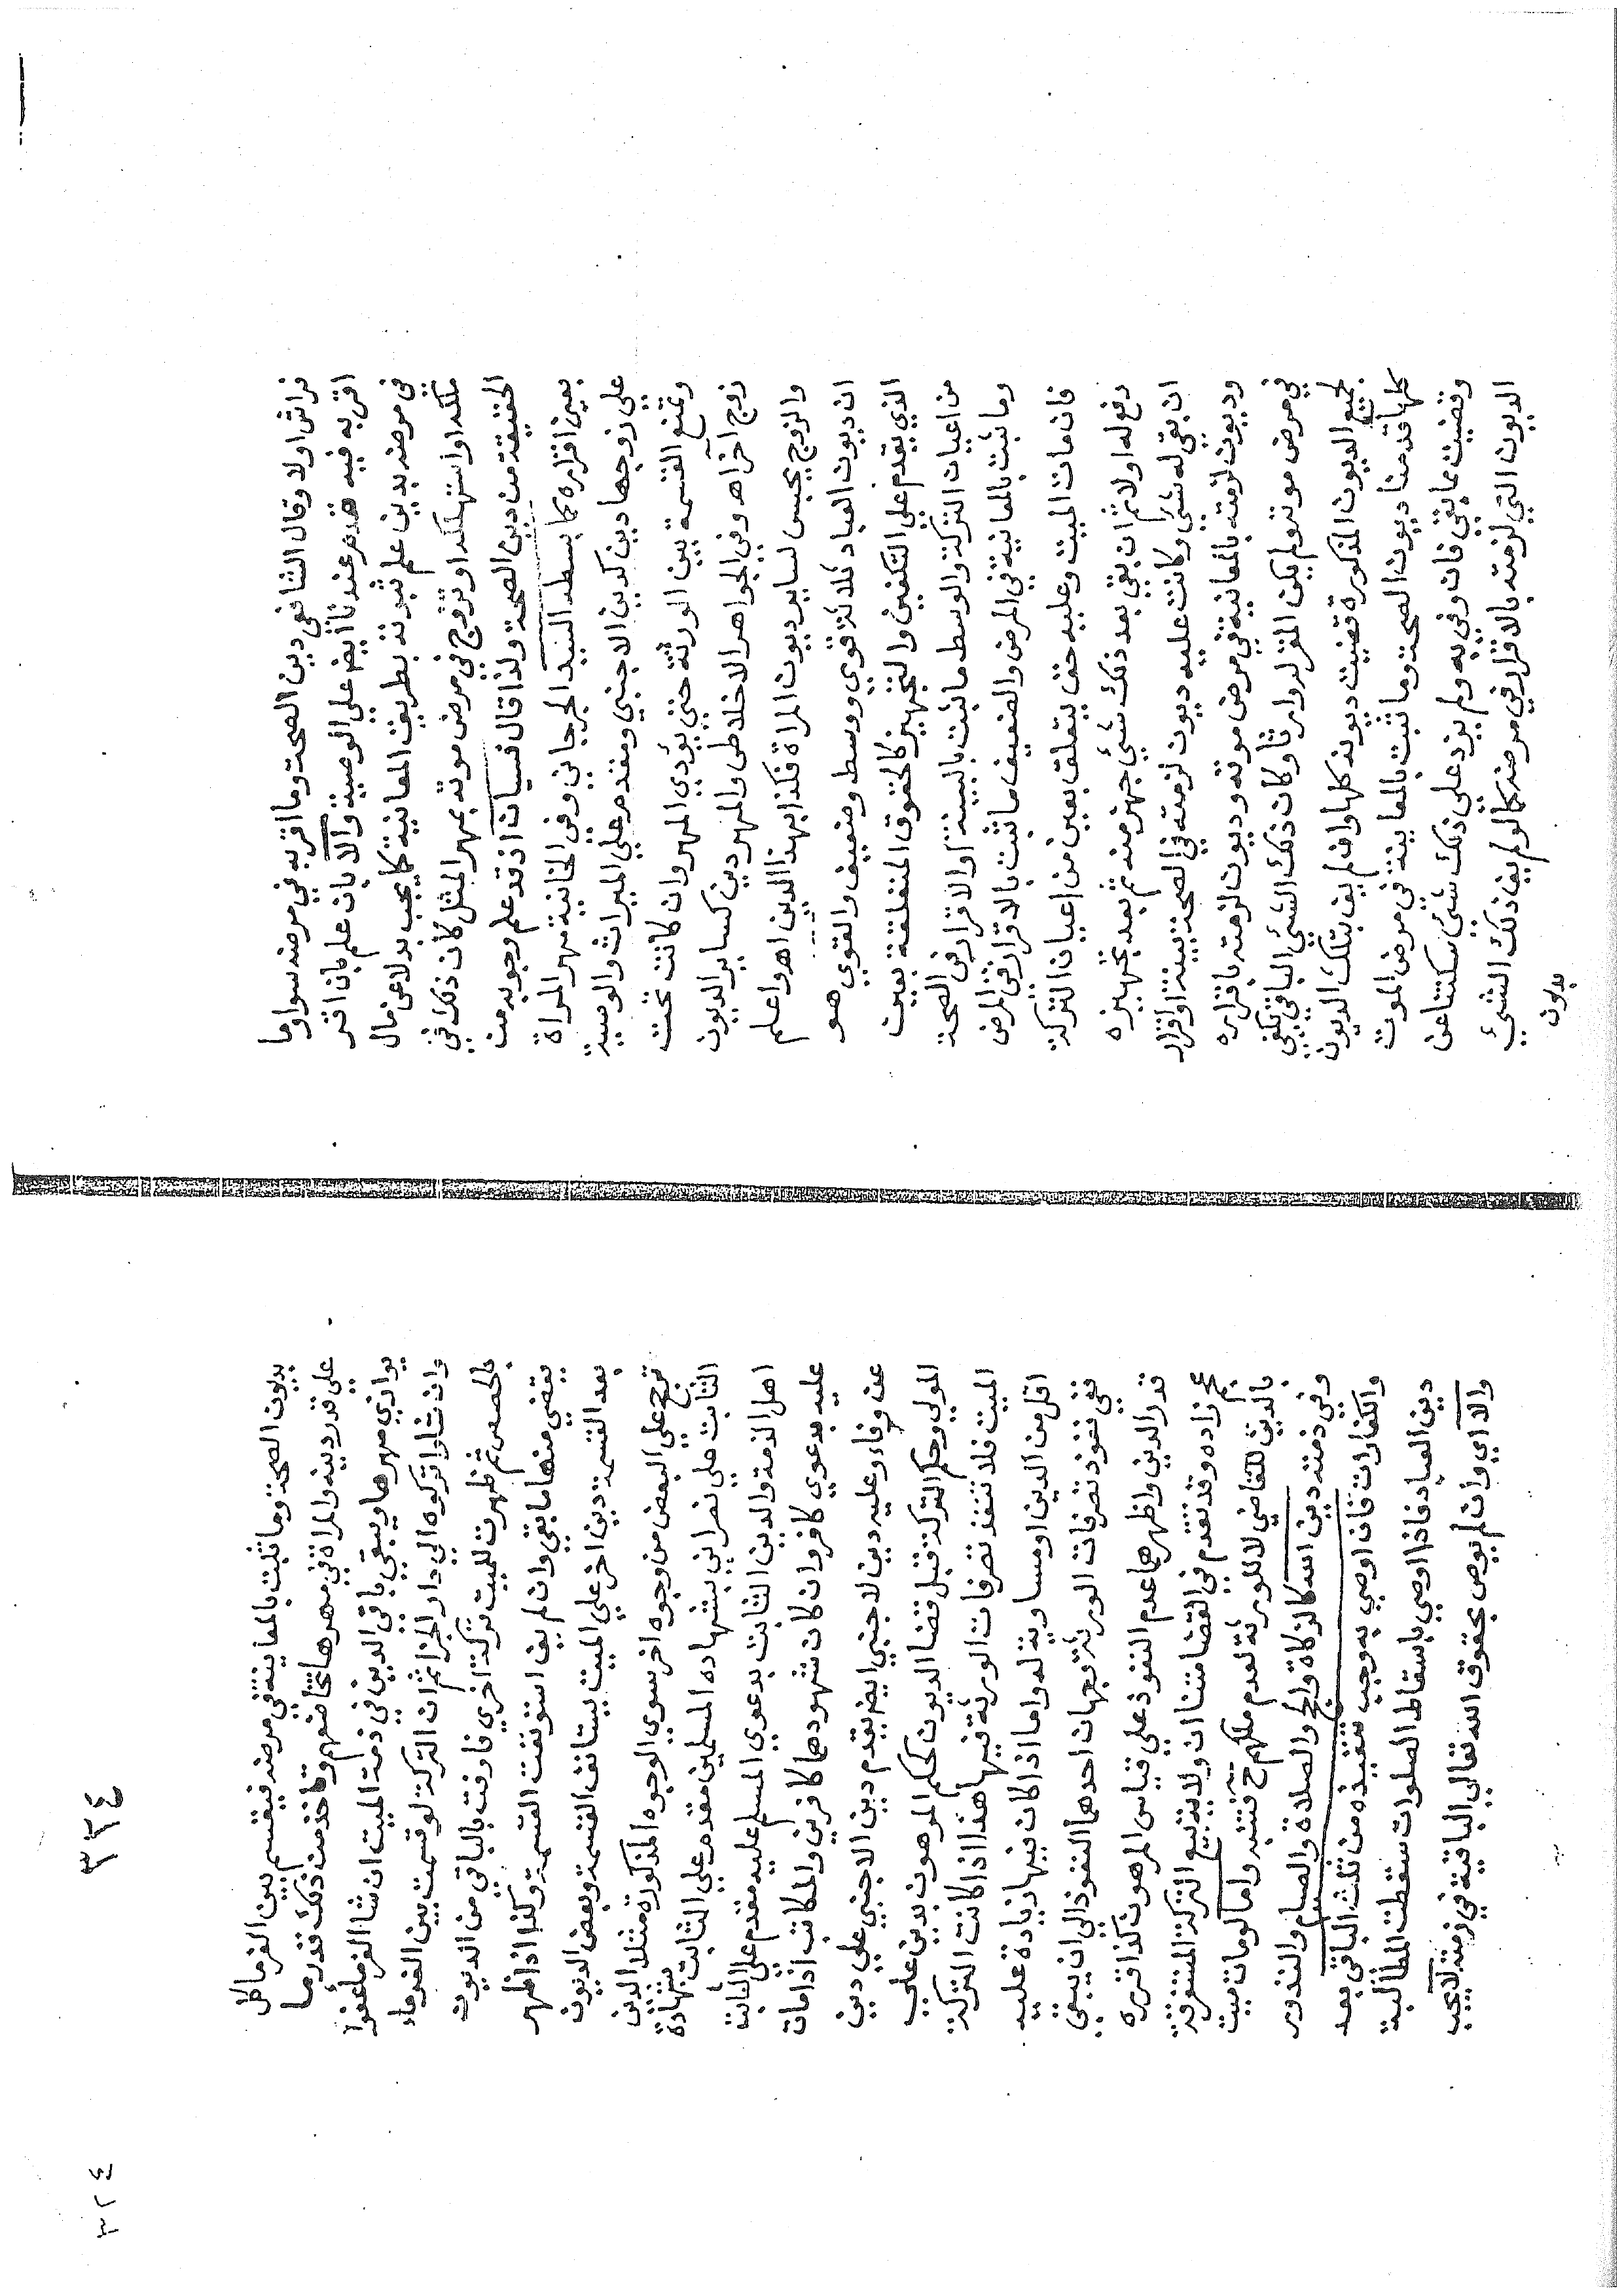 فراش اولا وقال الشافعي دين الصحة وما اقر به في مرضه سوا وما
اقر به فيه مقدم عندنا أيض علي الوصية والا بان علم بان اقر
في مرضه بدين علم ثبوته بطريق المعاينة كما يجب بدلا عن مال
ملكه او استهلكه او تزوج في مرض موته بمهر المثل كان ذلك في
الحقيقة من دين الصحة ولذا قال فسيان اذ قد علم وجوبه من
بعين اقراره كما بسطه السيد الجرجاني وفي الخانية مهر المراة
علي زوجها دين كدين الاجنبي ومقدم علي الميراث والوصية
وتمنع القسمة بين الورثة حتي يؤدي المهر وان كانت تحت
زوج اخر اه وفي الجواهر الاخلاطي والمهر دين كساير الديون
والزوج يحبس لساير ديون المراة فكذا بهذا الدين اهـ واعلم
ان ديون العباد ثلاثة قوي ووسط وضعيف والقوي هو
الذي يقدم علي التكفين والتجهيز كالحقوق المتعلقة بعين
من اعيان التركة والوسط ما ثبت بالبينة او الاقرار في الصحة
وما ثبت بالمعاينة في المرض والضعيف ما ثبت بالاقرار في المرض
فان مات الميت وعليه حق يتعلق بعين من اعيان التركة
دفع له اولا ثم ان بقي بعد ذلك شيء جهز منه ثم بعد تجهيزه
ان بقي له شيء وكانت عليه ديون لزمته في الصحة ببينة او اقرار
وديون لزمته بالمعاينة في مرض موته وديون لزمته باقراره
في مرض موته ولم يكن المقر له وارثا وكان ذلك الشيء الباقي يكفي
لجميع الديون المذكورة قضيت ديونه كلها وان لم يف بتلك الديون
كلها قدمنا ديون الصحة وما ثبت بالمعاينة في مرض الموت
وقضيت مما بقي فان وفي به ولم يزد علي ذلك شيء سكتنا عن
الديون التي لزمته بالاقرار في مرضه كما لو لم يف ذلك الشيء
بديون
بديون الصحة وما ثبت بالمعاينة في مرضه فيقسم بين الغرما كل
علي قدر دينه والمراة في مهرها تحاصصهم وتاخذ من ذلك قدر ما
يوازي مهرها ويبقي باقي الدين في ذمة الميت ان شا الغرما عفوا
وان شاؤا تركوه الي دار الجزا ثم ان التركة لو قسمت بين الغرماء
بالحصص ثم ظهرت للميت تركة اخري فاوفت بالباقي من الديون
يقضي منها ما بقي وان لم يف استوفت القسمة وكذا اذا ظهر
بعد القسمة دين اخر علي الميت يستانف القسمة وبعض الديون
ترجح علي البعض من وجوه اخر سوي الوجوه المذكورة مثلا الدين
الثابت علي نصراني بشهادة المسلمين مقدم علي الثابت بشهادة
اهل الذمة والدين الثابت بدعوي المسلم عليه مقدم علي الثابت
عليه بدعوي كافر وان كان شهودهما كافرين والمكاتب اذا مات
عن وفاء وعليه دين لاجنبي ايض يقدم دين الاجنبي علي دين
المولي وحكم التركة قبل قضا الديون كحكم المرهون بدين علي
الميت فلا تنفذ تصرفات الورثة فيها هذا اذا كانت التركة
اقل من الدين او مساوية له واما اذا كان فيها زيادة عليه
ففي نفوذ تصرفات الورثة وجهان احدهما النفوذ الي ان يبقي
قدر الدين واظهرهما عدم النفوذ علي قياس المرهون كذا قرره
عجم زاده وقد تقدم في القضا متنا ان ولاية بيع التركة المستغرقة
بالدين للقاضي لا للورثة لعدم ملكهم ح فتنبه واما لو مات ميت
وفي ذمته دين الله كالزكاة والحج والصلاة والصيام والنذور
والكفارات فان اوصي به وجب تنفيذه من ثلث الباقي بعد
دين العباد فاذا اوصي باسقاط الصلوات سقطت المطالبة
والا اي وان لم يوص بحقوق الله تعالي الباقية في ذمته لا يجب
٣٣٤
٣٢٤